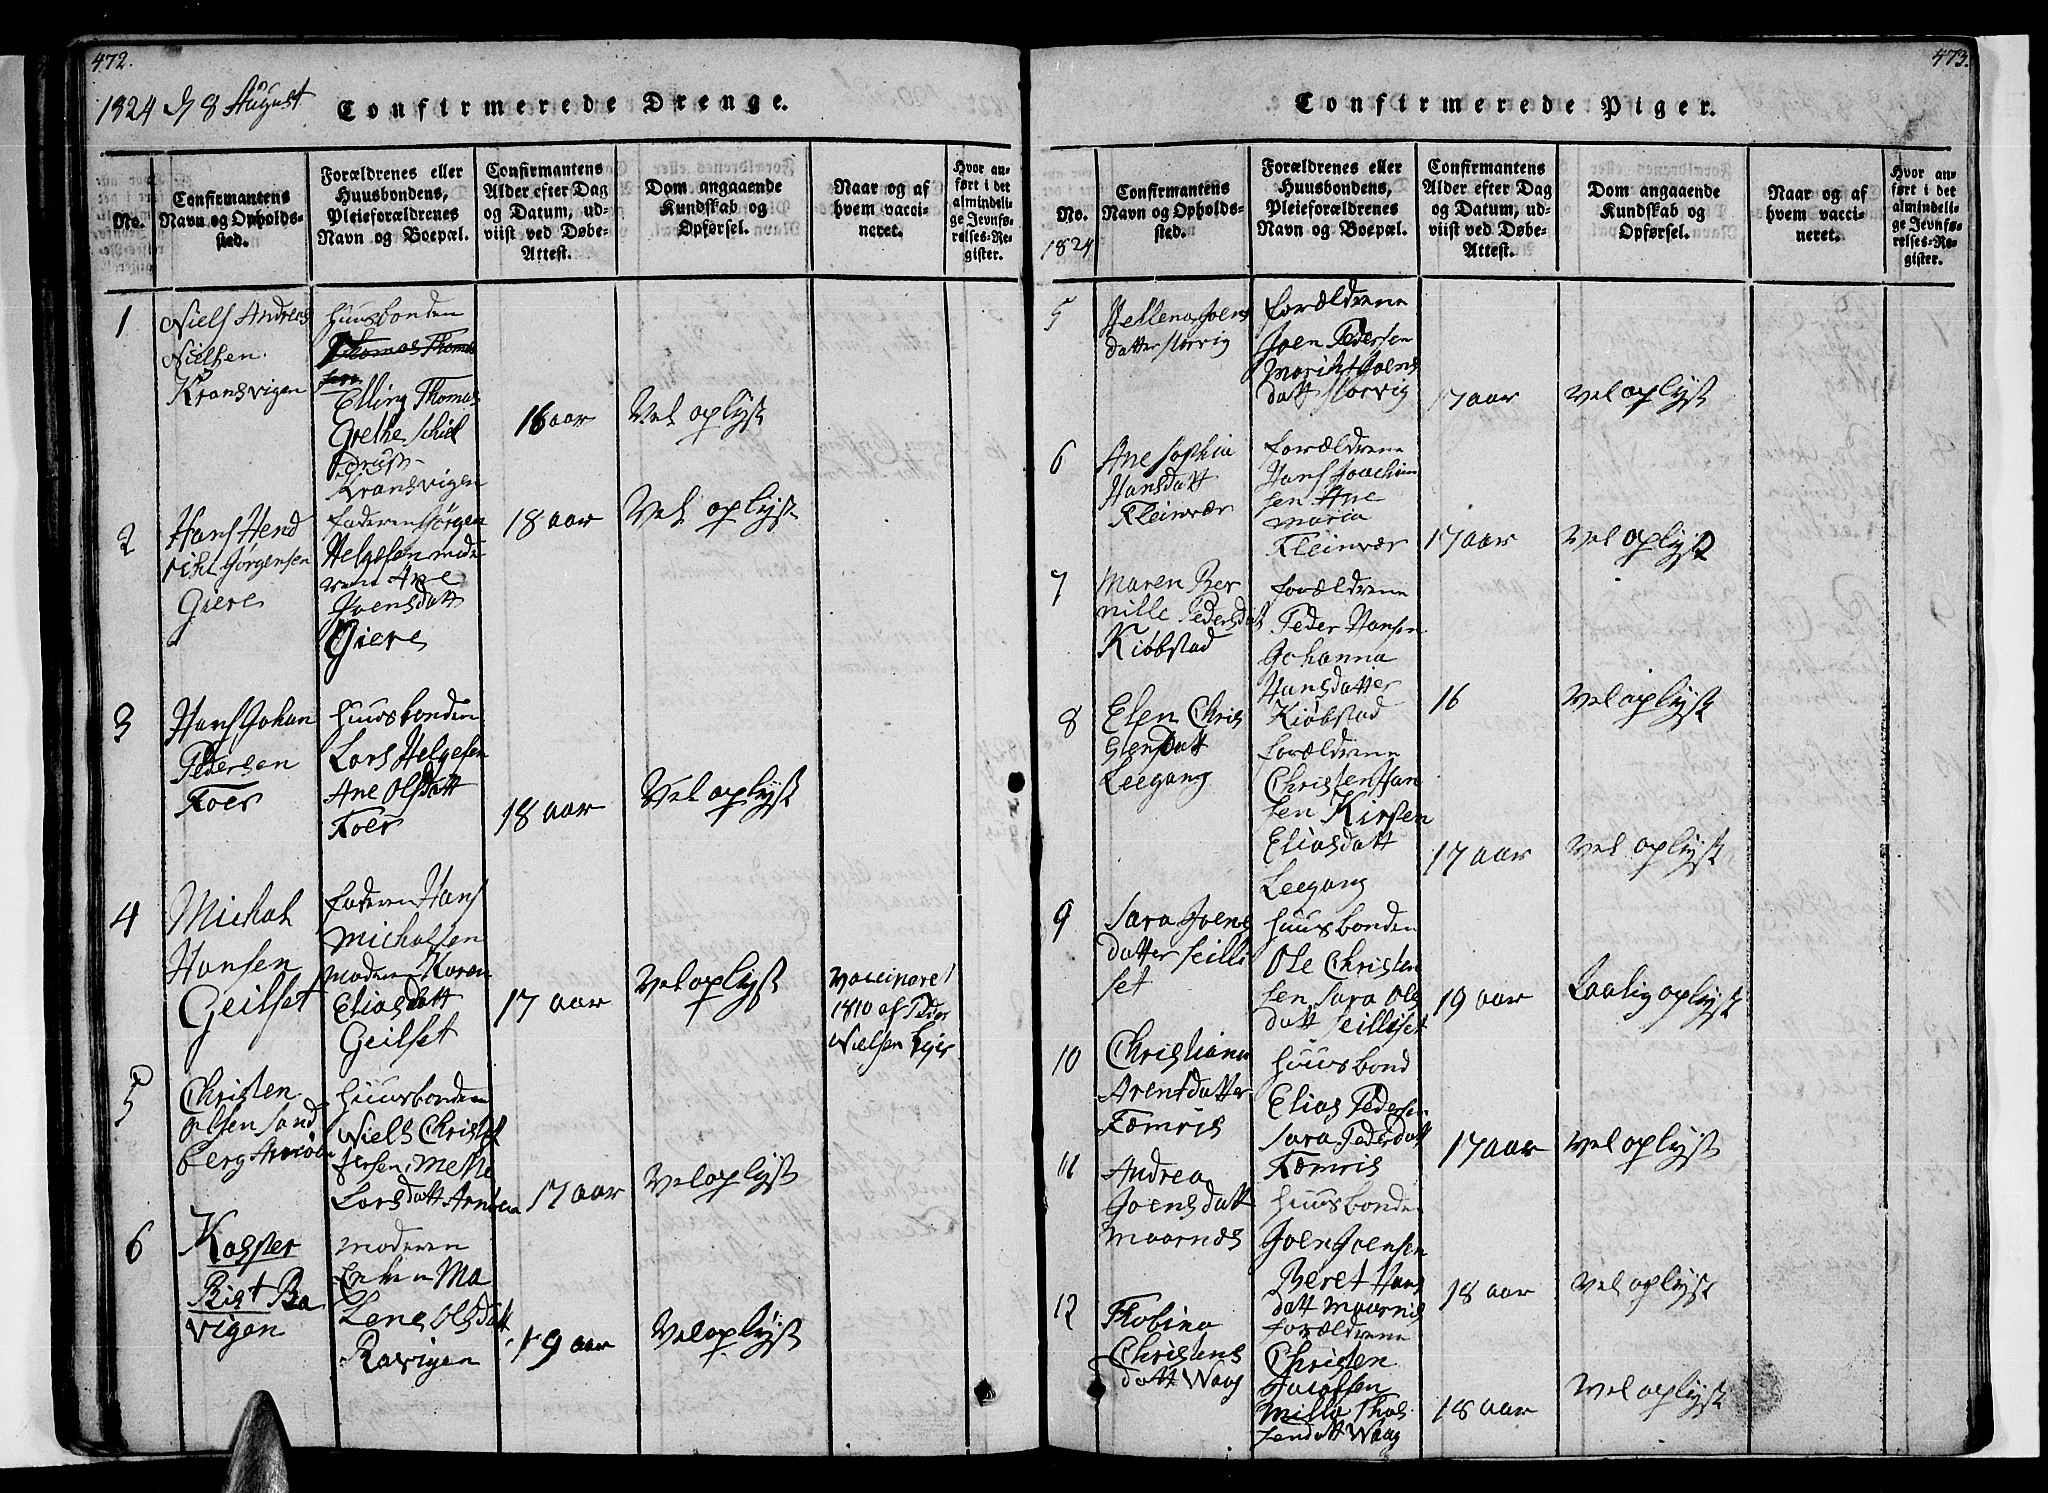 472.
1824 d 8 August
Confirmerede Drenge.
No.
Confirmantens
Navn og Opholds-
sted.
Forældrenes eller
Huusbondens,
Pleieforældrenes
Navn og Boepæl.
Confirmantens
Alder efter Dag
og Datum, ud-
viist ved Døbe-
Attest.
Dom angaaende
Kundskab og
Opførsel.
Naar og af
hvem vacci-
neret.
Hvor an-
ført i det
almindeli-
ge Jevnfø-
relses-Re-
gister.
1
Niels Andreas
Nielsen
Kransvigen
Huusbonden
Thomas Thomas
sen
Elling Thomas
Grethe Schiel
Kransvigen
16 aar
Vel oplyst
2
Hans Hend
rich Jørgensen
Giere
Faderen Jørgen
Helgesen mode
ren Ane
Joensdatt
Giere
18 aar
Vel oplyst
3
Hans Johan
Pedersen
Foer
Huusbonden
Lars Helgesen
Ane Olsdatt
Foer
18 aar
Vel oplyst
4
Michal
Hansen
Geilset
Faderen Hans
Michalsen
moderen Karen
Eliasdatt
Geilset
17 aar
Vel oplyst
vaccineret
1810 af Peder
Nielsen
5
Christen
Olsen Sand
berg Arnøen
Huusbonden
Niels Christof
fersen, Mette
Larsdatt Arnøen
17 aar
Vel oplyst
6
Kasper
Bist Ra
vigen
moderen
Enken Ma
Lene Olsdatt
Ravigen
19 aar
Vel oplyst
473.
Confirmerede Piger.
No.
1824
Confirmantens
Navn og Opholds-
sted.
Forældrenes eller
Huusbondens,
Pleieforældrenes
Navn og Boepæl.
Confirmantens
Alder efter Dag
og Datum, ud-
viist ved Døbe-
Attest.
Dom angaaende
Kundskab og
Opførsel.
Naar og af
hvem vacci-
neret.
Hvor an-
ført i det
almindeli-
ge Jevnfø-
relses-Re-
gister.
5
Hellena Joens
datter Storvig
Forældrene
Joen Pedersen
Marith Joens
datt Storvig
17 aar
Vel oplyst
6
Ane Sophia
Hansdatt
Fleinvær
Forældrene
Hans Joachim
sen Ane
maria
Fleinvær
17 aar
Vel oplyst
7
Maren Ber
nille Pedersdatt
Kiøbstad
Forældrene
Peder Hansen
Johanna
Hansdatter
Kiøbstad
16
Vel oplyst
8
Elen Chris
tensdatt
Leegang
Forældrene
Christen Han
sen Kirsten
Eliasdatt
Leegang
17 aar
Vel oplyst
9
Sara Joens
datter Seilli
set
Huusbonden
Ole Christen
sen Sara Ols
datt Seilliset
19 aar
Laalig oplyst
10
Christiana
Arentdatter
Femris
Huusbond
Elias Pedersen
Sara Pedersdatt
Femris
17 aar
Vel oplyst
11
Andrea
Joensdatt
Maarnes
Huusbonden
Joen Joensen
Beret Hans
datt Maarnes
18 aar
Vel oplyst
12
Tobina
Christens
datt Waag
Forældrene
Christen
Jacobsen
Milla Thos
sendatt Waag
18 aar
Vel oplyst